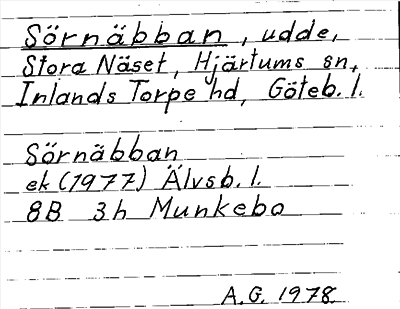 Sörnäbban, udde,
Stora Näset, Hjärtums sn,
Inlands Torpe hd, Göteb. l.
Sörnäbban
ek (1977) Älvsb. l.
8B 3h Munkebo
A.G. 1978